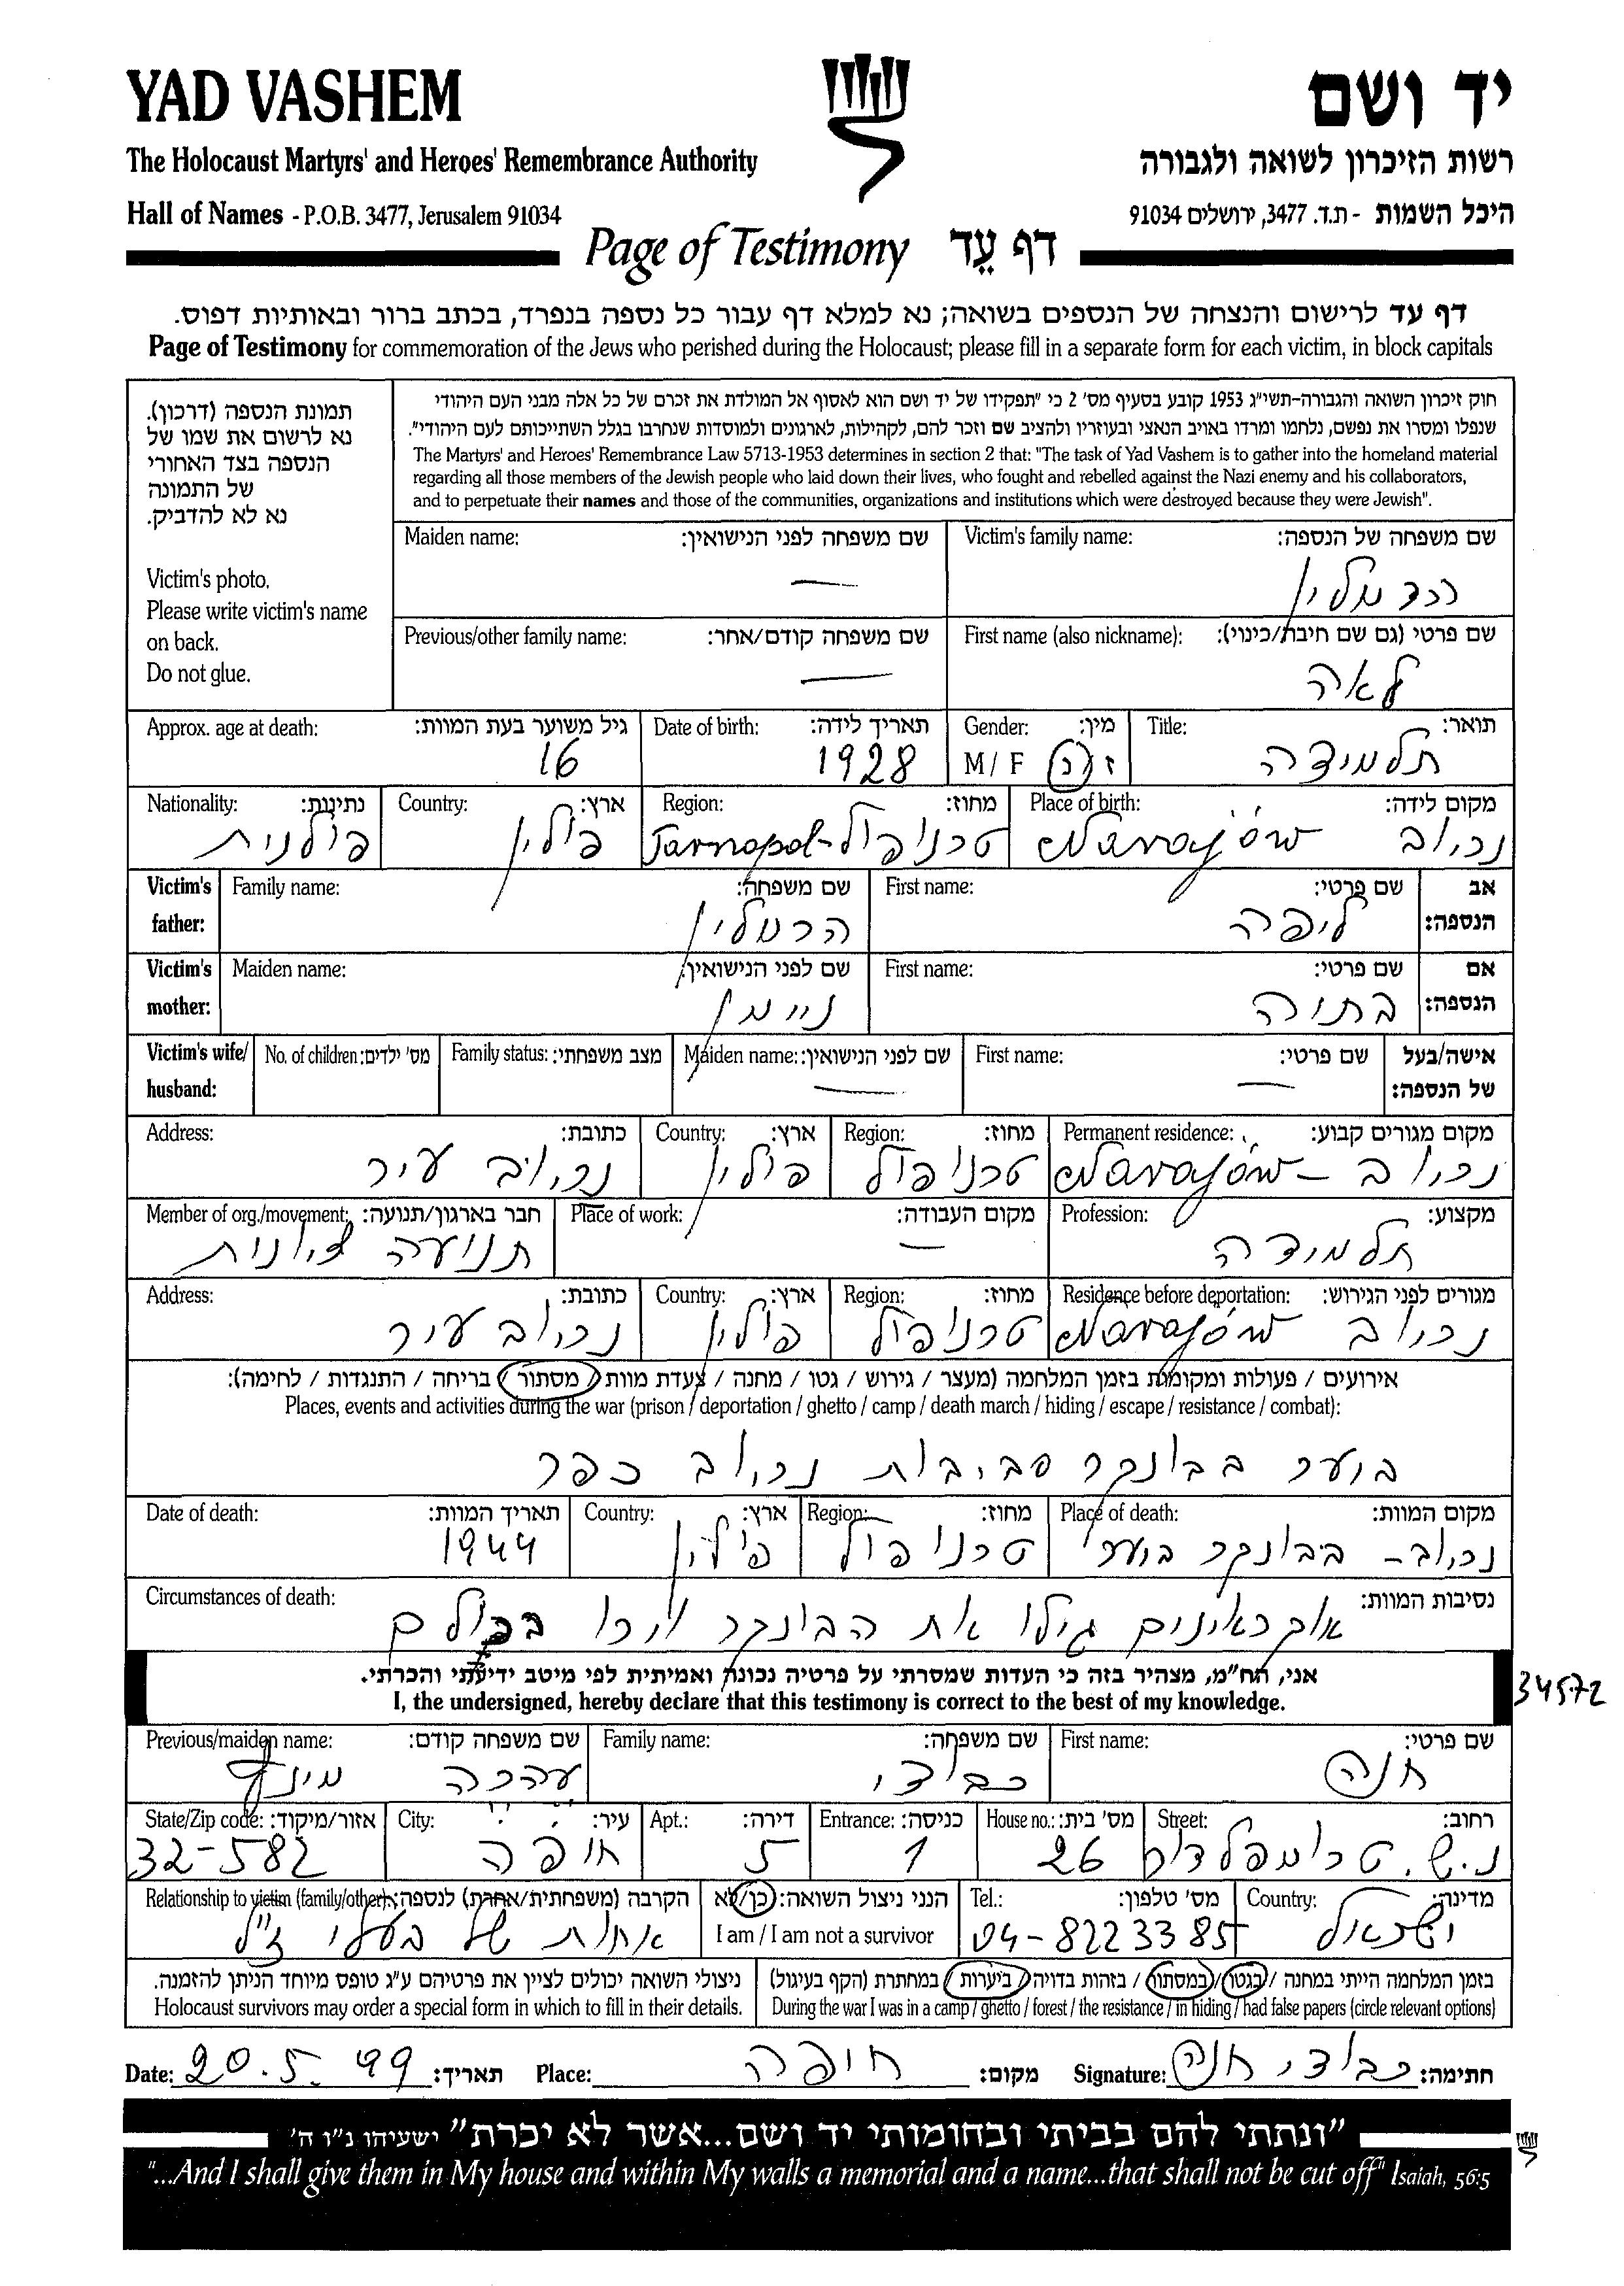 YAD VASHEM
יד ושם
The Holocaust Martyrs' and Heroes' Remembrance Authority
רשות הזיכרון לשואה ולגבורה
Hall of Names - P.O.B. 3477, Jerusalem 91034
היכל השמות - ת.ד. 3477, ירושלים 91034
Page of Testimony דף עֵד
דף עד לרישום והנצחה של הנספים בשואה; נא למלא דף עבור כל נספה בנפרד, בכתב ברור ובאותיות דפוס.
Page of Testimony for commemoration of the Jews who perished during the Holocaust; please fill in a separate form for each victim, in block capitals
תמונת הנספה (דרכון).
נא לרשום את שמו של
הנספה בצד האחורי
של התמונה
נא לא להדביק.
Victim's photo.
Please write victim's name
on back.
Do not glue.
חוק זיכרון השואה והגבורה-תשי"ג 1953 קובע בסעיף מס' 2 כי "תפקידו של יד ושם הוא לאסוף אל המולדת את זכרם של כל אלה מבני העם היהודי
שנפלו ומסרו את נפשם, נלחמו ומרדו באויב הנאצי ובעוזריו ולהציב שם וזכר להם, לקהילות, לארגונים ולמוסדות שנחרבו בגלל השתייכותם לעם היהודי".
The Martyrs' and Heroes' Remembrance Law 5713-1953 determines in section 2 that: "The task of Yad Vashem is to gather into the homeland material
regarding all those members of the Jewish people who laid down their lives, who fought and rebelled against the Nazi enemy and his collaborators,
and to perpetuate their names and those of the communities, organizations and institutions which were destroyed because they were Jewish".
Victim's family name: שם משפחה של הנספה:
Maiden name: שם משפחה לפני הנישואין:
—
First name (also nickname): שם פרטי (גם שם חיבה/כינוי):
לאה
Previous/other family name: שם משפחה קודם/אחר:
—
Title: תואר:
תלמידה
Gender: מין:
M / F ז / נ
Date of birth: תאריך לידה:
1928
Approx. age at death: גיל משוער בעת המוות:
16
Place of birth: מקום לידה:
נריוב Narajów
Region: מחוז:
טרנופול - Tarnopol
Country: ארץ:
פולין
Nationality: נתינות:
פולנית
Victim's father: אב הנספה:
First name: שם פרטי:
ליפה
Family name: שם משפחה:
הרמלין
Victim's mother: אם הנספה:
First name: שם פרטי:
בתיה
Maiden name: שם לפני הנישואין:
ניימן
Victim's wife/husband: אישה/בעל של הנספה:
First name: שם פרטי:
—
Maiden name: שם לפני הנישואין:
—
Family status: מצב משפחתי:
No. of children: מס' ילדים:
Permanent residence: מקום מגורים קבוע:
נריוב - Narajów
Region: מחוז:
טרנופול
Country: ארץ:
פולין
Address: כתובת:
נריוב עיר
Profession: מקצוע:
תלמידה
Place of work: מקום העבודה:
—
Member of org./movement: חבר בארגון/תנועה:
תנועה ציונית
Residence before deportation: מגורים לפני הגירוש:
נריוב Narajów
Region: מחוז:
טרנופול
Country: ארץ:
פולין
Address: כתובת:
נריוב עיר
אירועים / פעולות ומקומות בזמן המלחמה (מעצר / גירוש / גטו / מחנה / צעדת מוות / מסתור / בריחה / התנגדות / לחימה):
Places, events and activities during the war (prison / deportation / ghetto / camp / death march / hiding / escape / resistance / combat):
ביער בבונקר סביבות נריוב כפר
Place of death: מקום המוות:
נריוב - בבונקר ביער
Region: מחוז:
טרנופול
Country: ארץ:
פולין
Date of death: תאריך המוות:
1944
Circumstances of death: נסיבות המוות:
אוקראינים גילו את הבונקר וירו בכולם
אני, הח"מ, מצהיר בזה כי העדות שמסרתי על פרטיה נכונה ואמיתית לפי מיטב ידיעתי והכרתי.
I, the undersigned, hereby declare that this testimony is correct to the best of my knowledge.
34572
First name: שם פרטי:
חנה
Family name: שם משפחה:
Previous/maiden name: שם משפחה קודם:
Street: רחוב:
נ.ש. טרומפלדור
House no.: מס' בית:
26
Entrance: כניסה:
1
Apt.: דירה:
5
City: עיר:
חיפה
State/Zip code: אזור/מיקוד:
32-582
Country: מדינה:
ישראל
Tel.: מס' טלפון:
04-8223385
הנני ניצול השואה: כן/לא
I am / I am not a survivor
Relationship to victim (family/other): הקרבה (משפחתית/אחרת) לנספה:
אחות של בעלי ז"ל
בזמן המלחמה הייתי במחנה / בגטו / במסתור / בזהות בדויה / ביערות / במחתרת (הקף בעיגול)
During the war I was in a camp / ghetto / forest / the resistance / in hiding / had false papers (circle relevant options)
ניצולי השואה יכולים לציין את פרטיהם ע"ג טופס מיוחד הניתן להזמנה.
Holocaust survivors may order a special form in which to fill in their details.
Date: 20.5.99 תאריך:
Place: חיפה מקום:
Signature: חנה חתימה:
"ונתתי להם בביתי ובחומותי יד ושם...אשר לא יכרת" ישעיהו נ"ו ה'
"...And I shall give them in My house and within My walls a memorial and a name...that shall not be cut off" Isaiah, 56:5